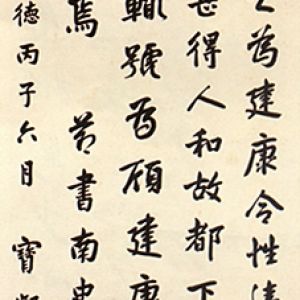 之為建康令性清
甚得人和故都下
輒號為顧建康
焉 節書南史
德丙子六月 寶熙